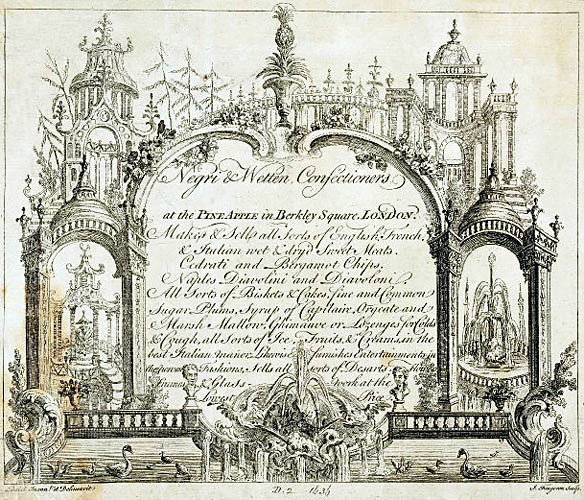 Negri & Wetten Confectioners
at the PINE APPLE in Berkley Square, LONDON.
Makes & Sells all Sorts of English, French,
& Italian wet & dry'd Sweet Meats,
Cedrati and Bergamot Chips,
Naples Diavolini and Diavoloni,
All Sorts of Biskets & Cakes, fine and Common
Sugar Plums, Syrup of Capilaire, Orgeate and
Marsh Mallow, Ghimauve or Lozenges for Colds
& Cough, all Sorts of Ice, Fruits, & Creams, in the
best Italian manner, Likewise furnishes Entertainments in
Fashions, Sells all sorts of Desarts
& Glass work at the
Lowest Price
D. 2. 1434